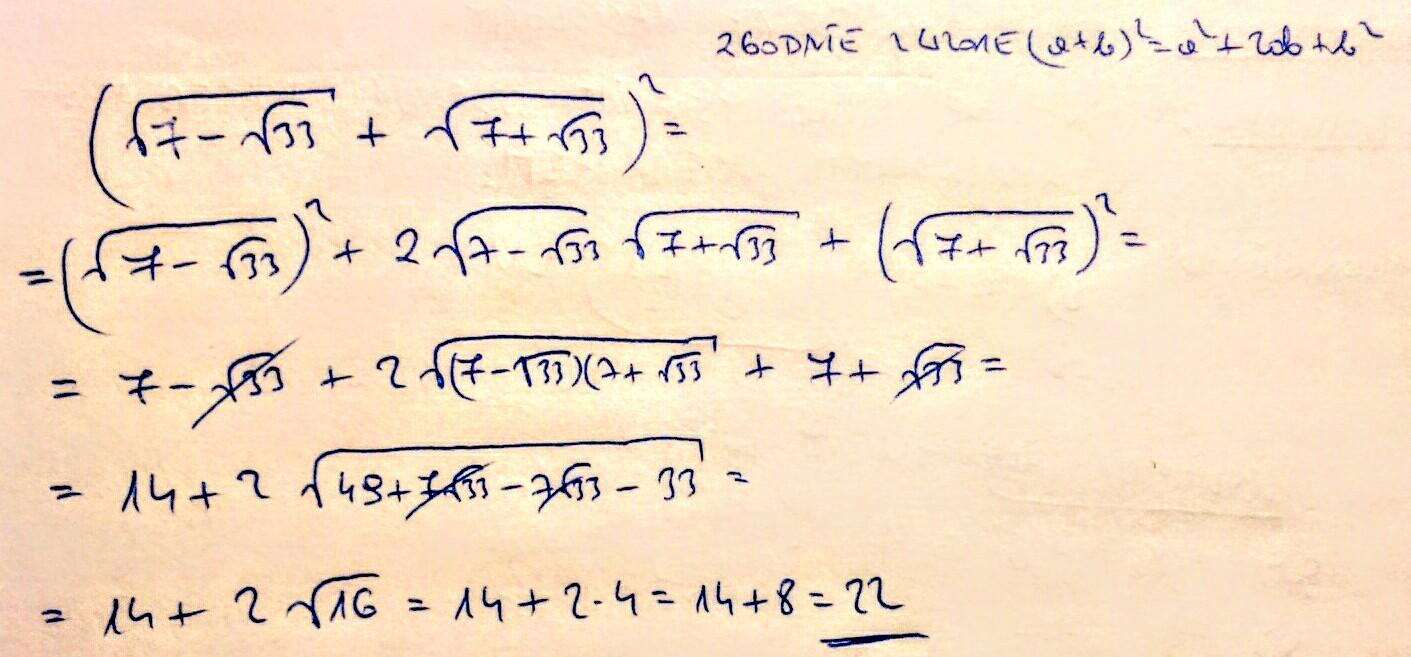 ZGODNIE Z WZOREM (a+b)²=a²+2ab+b²
(√(7-√33) + √(7+√33))² =
= (√(7-√33))² + 2√(7-√33) √(7+√33) + (√(7+√33))² =
= 7-√33 + 2√((7-√33)(7+√33) + 7+√33 =
= 14+2√(49+7√33-7√33-33) =
= 14+2√16 = 14+2·4 = 14+8 = 22